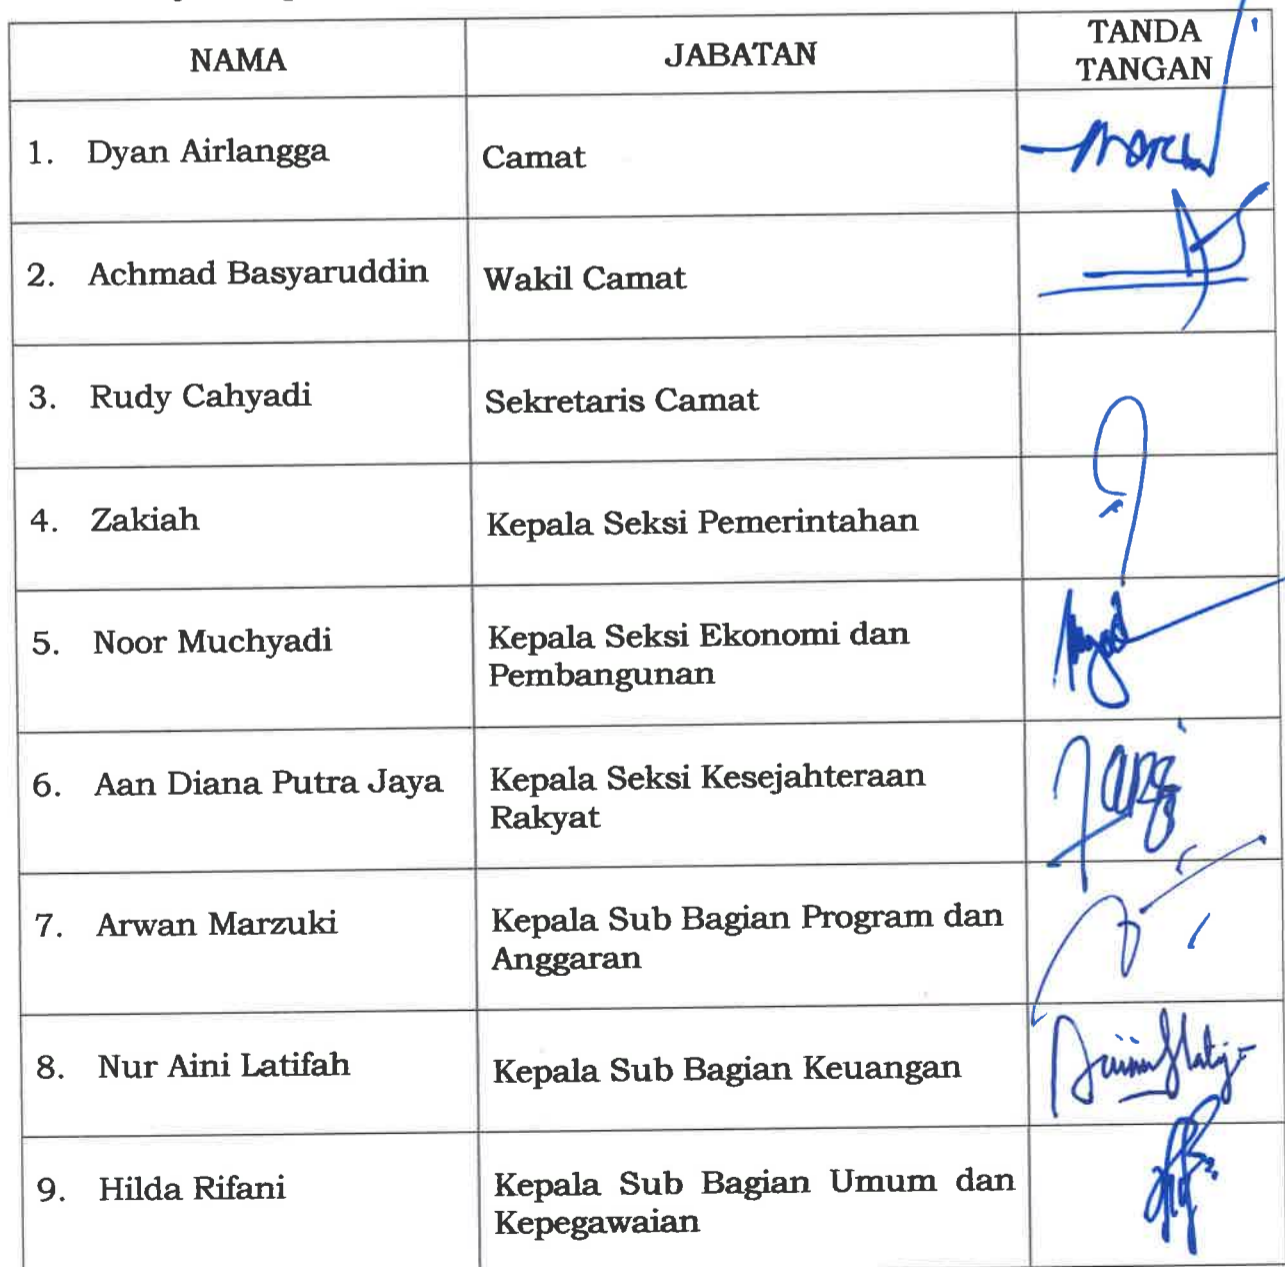 NAMA
JABATAN
TANDA
TANGAN
1. Dyan Airlangga
Camat
2. Achmad Basyaruddin
Wakil Camat
3. Rudy Cahyadi
Sekretaris Camat
4. Zakiah
Kepala Seksi Pemerintahan
5. Noor Muchyadi
Kepala Seksi Ekonomi dan
Pembangunan
6. Aan Diana Putra Jaya
Kepala Seksi Kesejahteraan
Rakyat
7. Arwan Marzuki
Kepala Sub Bagian Program dan
Anggaran
8. Nur Aini Latifah
Kepala Sub Bagian Keuangan
9. Hilda Rifani
Kepala Sub Bagian Umum dan
Kepegawaian